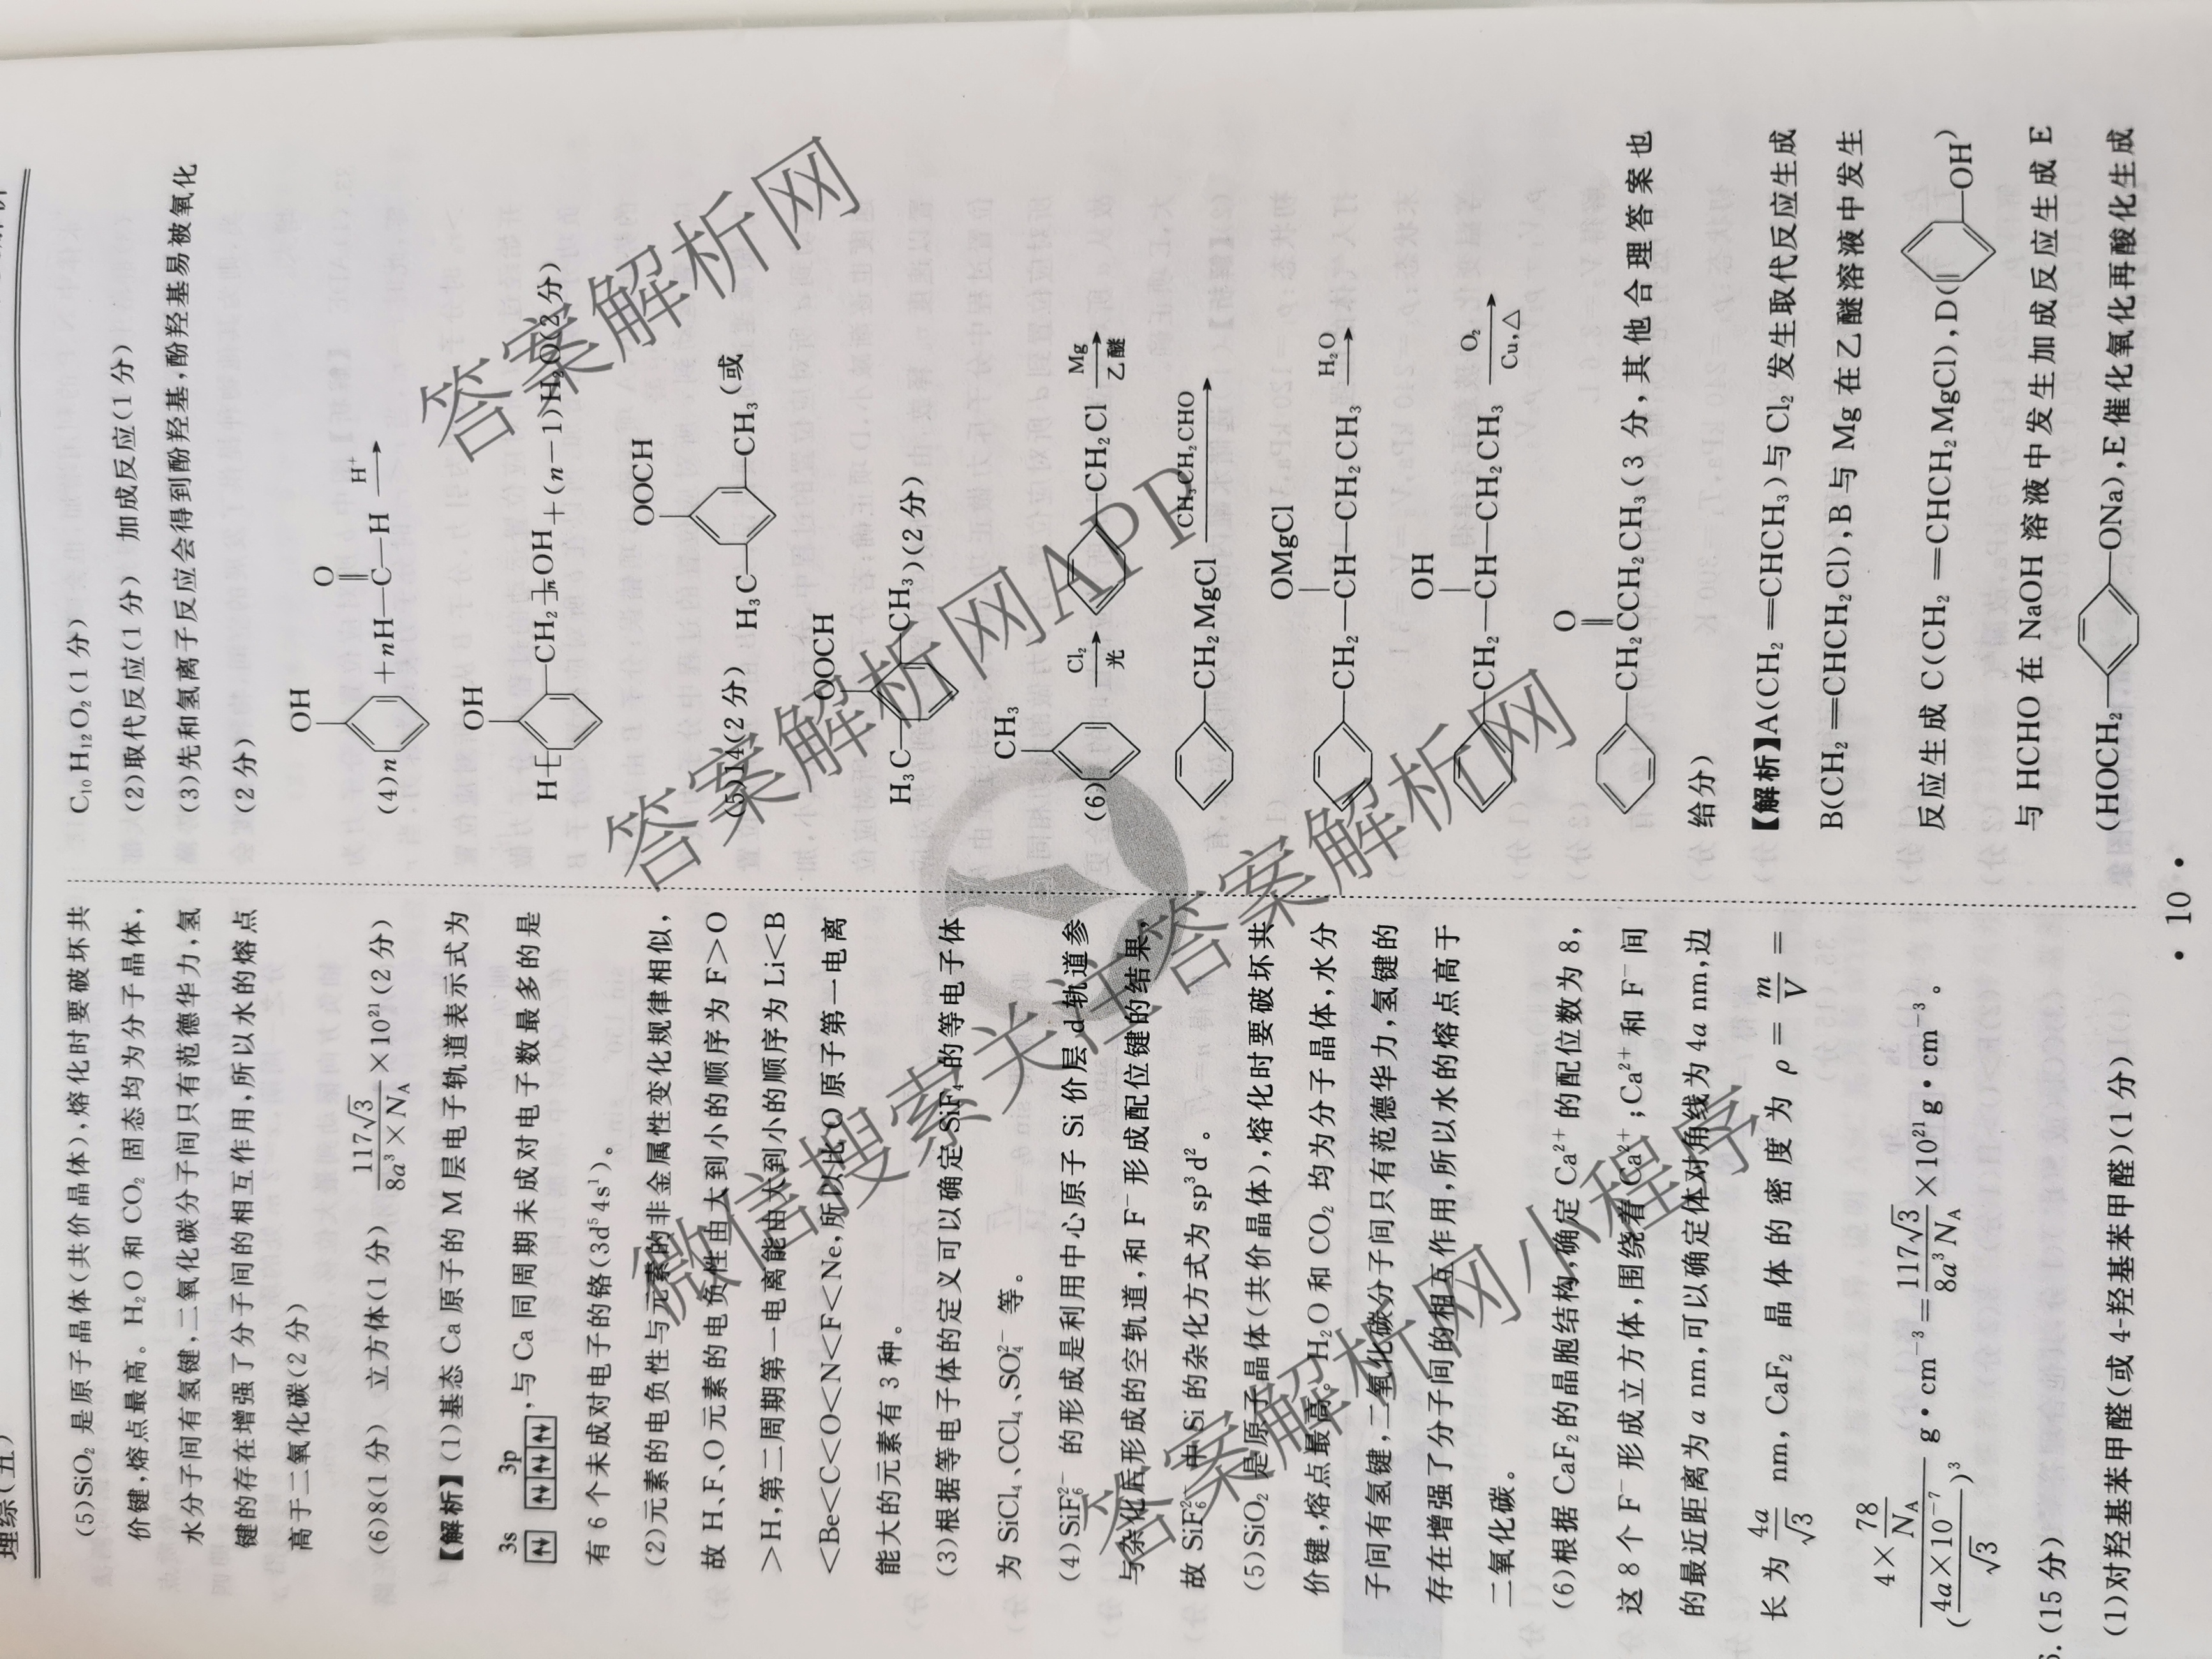 理综(五)
(5)SiO₂ 是原子晶体(共价晶体),熔化时要破坏共
价键,熔点最高。H₂O 和 CO₂ 固态均为分子晶体,
水分子间有氢键,二氧化碳分子间只有范德华力,氢
键的存在增强了分子间的相互作用,所以水的熔点
高于二氧化碳(2 分)
(6)8(1 分) 立方体(1 分) 117√3/(8a³×N_A)×10²¹(2 分)
【解析】(1)基态 Ca 原子的 M 层电子轨道表示式为
3s 3p
[↑↓] [↑↓][↑↓][↑↓],与 Ca 同周期未成对电子数最多的是
有 6 个未成对电子的铬(3d⁵4s¹)。
(2)元素的电负性与元素的非金属性变化规律相似,
故 H、F、O 元素的电负性由大到小的顺序为 F>O
>H,第二周期第一电离能由大到小的顺序为 Li<B
<Be<C<O<N<F<Ne,所以比 O 原子第一电离
能大的元素有 3 种。
(3)根据等电子体的定义可以确定 SiF₄ 的等电子体
为 SiCl₄、CCl₄、SO₄²⁻ 等。
(4)SiF₆²⁻ 的形成是利用中心原子 Si 价层 d 轨道参
与杂化后形成的空轨道,和 F⁻ 形成配位键的结果,
故 SiF₆²⁻ 中 Si 的杂化方式为 sp³d²。
(5)SiO₂ 是原子晶体(共价晶体),熔化时要破坏共
价键,熔点最高。H₂O 和 CO₂ 均为分子晶体,水分
子间有氢键,二氧化碳分子间只有范德华力,氢键的
存在增强了分子间的相互作用,所以水的熔点高于
二氧化碳。
(6)根据 CaF₂ 的晶胞结构,确定 Ca²⁺ 的配位数为 8,
这 8 个 F⁻ 形成立方体,围绕着 Ca²⁺;Ca²⁺ 和 F⁻ 间
的最近距离为 a nm,可以确定体对角线为 4a nm,边
长为 4a/√3 nm,CaF₂ 晶体的密度为 ρ = m/V =
(4×78/N_A)/(4a×10⁻⁷/√3)³ g·cm⁻³ = 117√3/(8a³N_A)×10²¹ g·cm⁻³。
6.(15 分)
(1)对羟基苯甲醛(或 4-羟基苯甲醛)(1 分)
C₁₀H₁₂O₂(1 分)
(2)取代反应(1 分) 加成反应(1 分)
(3)先和氢离子反应会得到酚羟基,酚羟基易被氧化
(2 分)
OH O
(4)n +nH—C—H H⁺→
OH
H—[ —CH₂—]ₙOH+(n−1)H₂O(2 分)
OOCH
(5)14(2 分) H₃C— —CH₃(或
OOCH
H₃C— —CH₃)(2 分)
CH₃
(6) Cl₂/光→ —CH₂Cl Mg/乙醚→
—CH₂MgCl CH₃CH₂CHO→
OMgCl
—CH₂—CH—CH₂CH₃ H₂O→
OH
—CH₂—CH—CH₂CH₃ O₂/Cu,△→
O
—CH₂CCH₂CH₃(3 分,其他合理答案也
给分)
【解析】A(CH₂=CHCH₃)与 Cl₂ 发生取代反应生成
B(CH₂=CHCH₂Cl),B 与 Mg 在乙醚溶液中发生
反应生成 C(CH₂=CHCH₂MgCl),D( —OH)
与 HCHO 在 NaOH 溶液中发生加成反应生成 E
(HOCH₂— —ONa),E 催化氧化再酸化生成
• 10 •
答案解析网
答案解析网APP
微信搜索关注答案解析网
答案解析网小程序